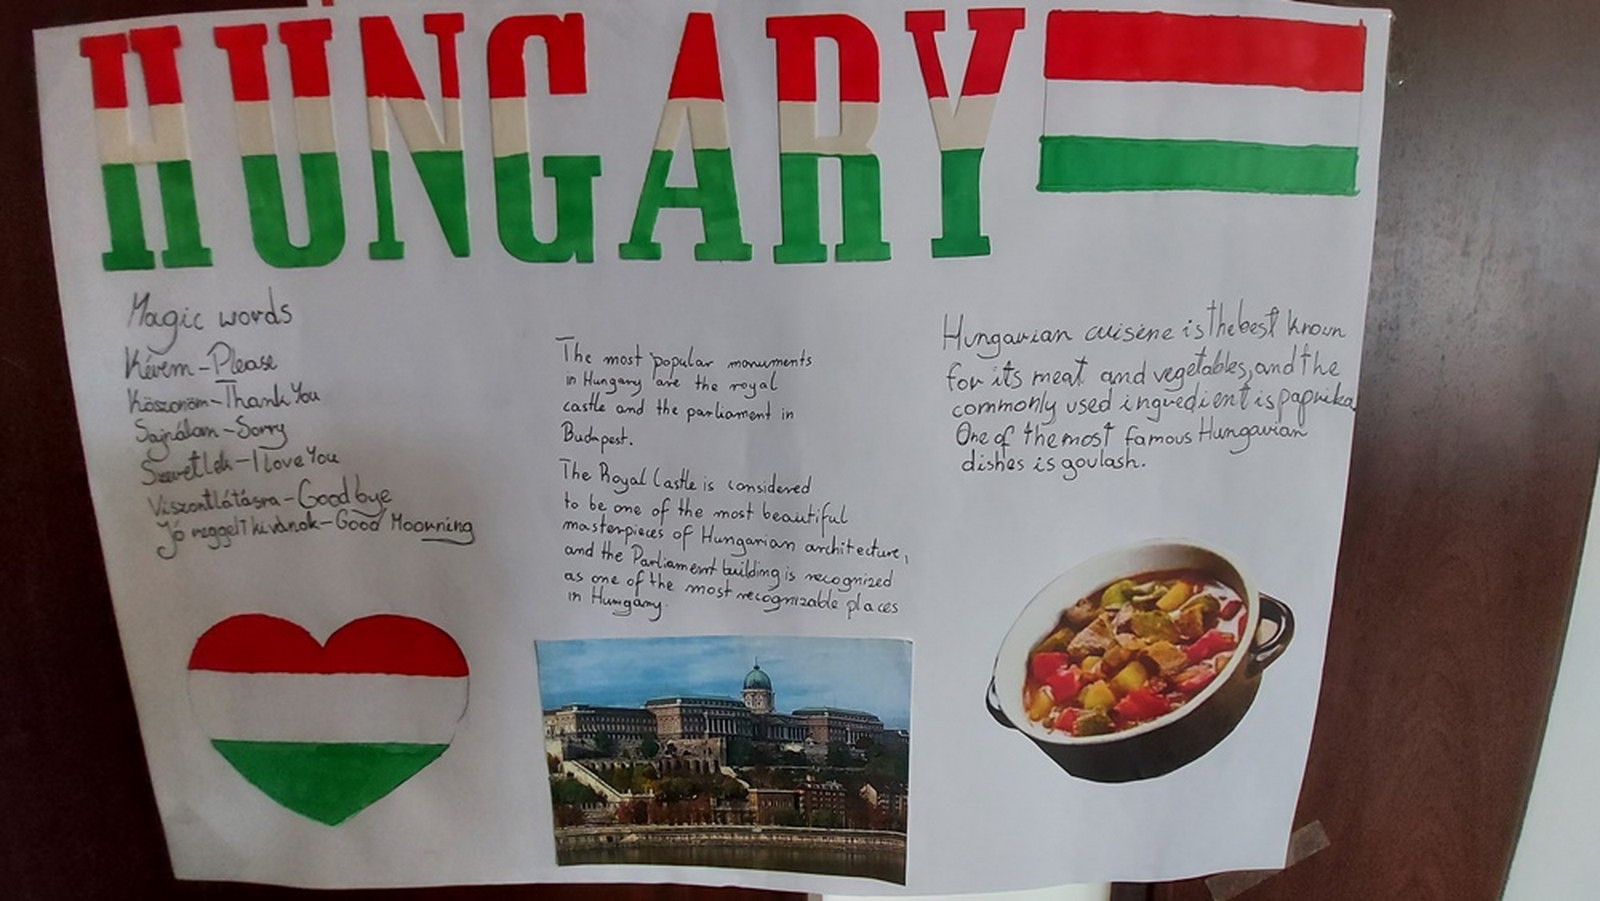 HUNGARY
Magic words
Kérem - Please
Köszonöm - Thank You
Sajnálom - Sorry
Szeretlek - I Love You
Viszontlátásra - Good bye
Jó reggelt kivánok - Good Moorning
The most popular monuments
in Hungary are the royal
castle and the parliament in
Budapest.
The Royal Castle is considered
to be one of the most beautiful
masterpieces of Hungarian architecture,
and the Parliament building is recognized
as one of the most recognizable places
in Hungary.
Hungarian cuisine is the best known
for its meat and vegetables, and the
commonly used ingredient is paprika
One of the most famous Hungarian
dishes is goulash.